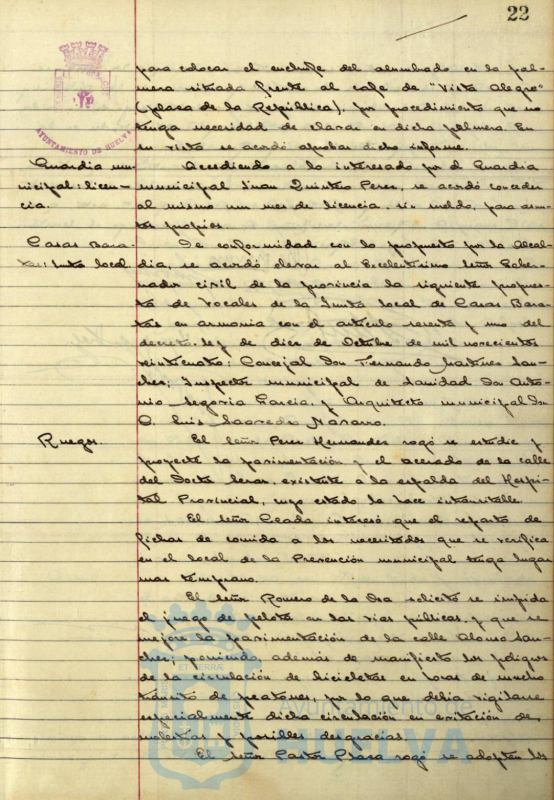 22
AYUNTAMIENTO DE HUELVA
para colocar el enchufe del alumbrado en la pal-
mera situada frente al cafe de "Vista Alegre"
(plaza de la República), por procedimiento que no
tenga necesidad de clavar en dicha palmera. En
su vista se acordó aprobar dicho informe.
Guardia mu-
nicipal: licen-
cia.
Accediendo a lo interesado por el Guardia
municipal Juan Quintero Perez, se acordó conceder
al mismo un mes de licencia, sin sueldo, para asun-
tos propios.
Casas Bara-
tas: Junta local.
De conformidad con lo propuesto por la Alcal-
dia, se acordó elevar al Excelentísimo Señor Gober-
nador civil de la provincia la siguiente propues-
ta de Vocales de la Junta local de Casas Bara-
tas en armonia con el artículo sesenta y uno del
decreto-ley de diez de Octubre de mil novecientos
veinticuatro: Concejal Don Fernando Martinez San-
chez; Inspector municipal de Sanidad Don Anto-
nio Segovia Garcia, y Arquitecto municipal Don
Luis Saavedra Navarro.
Ruegos.
El Señor Perez Hernandez rogó se estudie y
proyecte la pavimentación y el acerado de la calle
del Doctor existente a la espalda del Hospi-
tal Provincial, cuyo estado la hace intransitable.
El Señor Ceada interesó que el reparto de
fichas de comida a los necesitados que se verifica
en el local de la Prevención municipal tenga lugar
mas temprano.
El Señor Romero de la Osa solicitó se impida
el juego de pelota en las vias públicas, y que se
mejore la pavimentación de la calle Alonso San-
chez; poniendo además de manifiesto los peligros
de la circulación de bicicletas en horas de mucho
tránsito de peatones, por lo que debia vigilarse
especialmente dicha circulación en evitación de
molestias y posibles desgracias.
El Señor Pastor rogó se adopten los
Ayuntamiento de
HUELVA